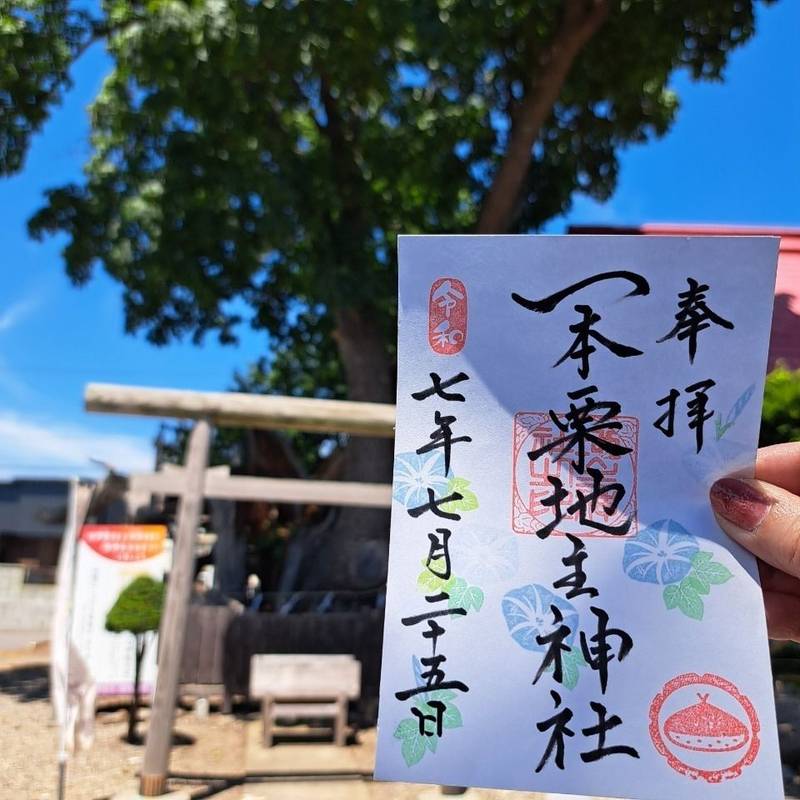 奉拝
一本栗地主神社
令和
七年七月二十五日